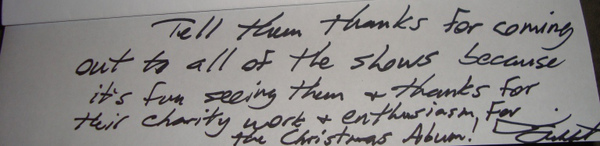 Tell them thanks for coming
out to all of the shows because
it's fun seeing them + thanks for
their charity work + enthusiasm, for
the Christmas Album!